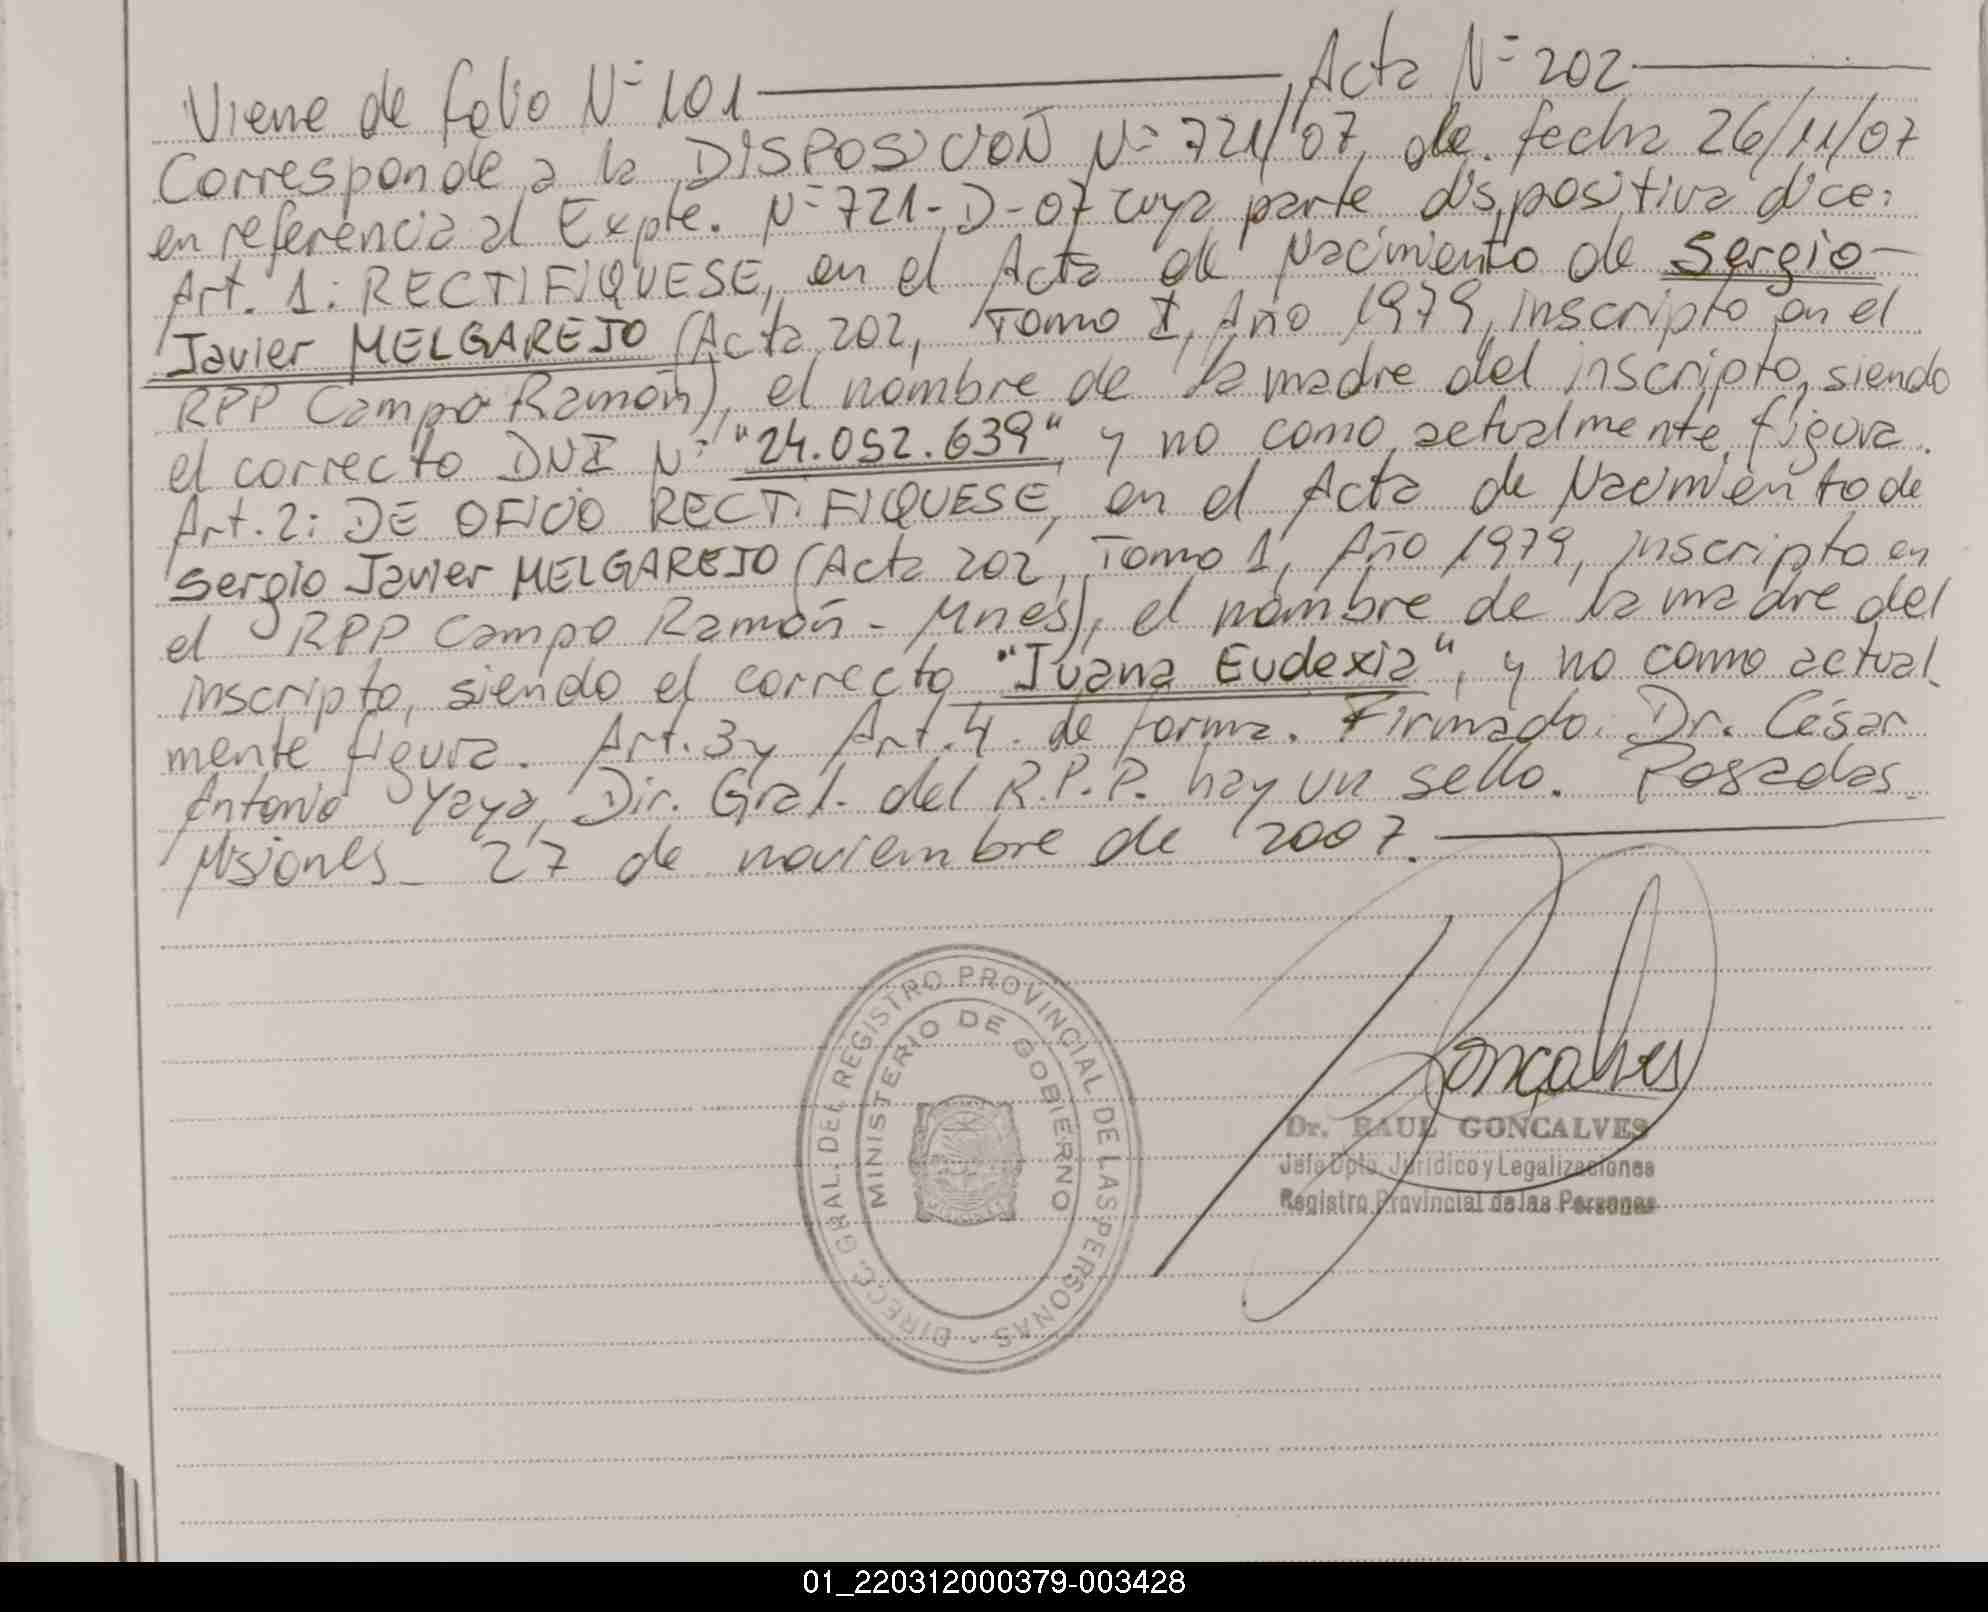 Viene de folio Nº 101 Acta Nº 202
Corresponde a la DISPOSICION Nº 721/07, de fecha 26/11/07
en referencia al Expte. Nº 721-D-07 cuya parte dispositiva dice:
Art. 1: RECTIFIQUESE, en el Acta de Nacimiento de Sergio
Javier MELGAREJO (Acta 202, Tomo I, Año 1979, inscripto en el
RPP Campo Ramón), el nombre de la madre del inscripto, siendo
el correcto DNI Nº "24.052.639", y no como actualmente figura.
Art. 2: DE OFICIO RECTIFIQUESE, en el Acta de Nacimiento de
Sergio Javier MELGAREJO (Acta 202, Tomo 1, Año 1979, inscripto en
el RPP Campo Ramón - Mnes), el nombre de la madre del
inscripto, siendo el correcto "Juana Eudexia", y no como actual
mente figura. Art. 3 y Art. 4 de forma. Firmado: Dr. César
Antonio Yaya, Dir. Gral. del R.P.P. hay un sello. Posadas
Misiones 27 de noviembre de 2007.
DIRECC. GRAL. DEL REGISTRO PROVINCIAL DE LAS PERSONAS -
MINISTERIO DE GOBIERNO
Gonçalves
Dr. RAUL GONCALVES
Jefe Dpto. Jurídico y Legalizaciones
Registro Provincial de las Personas
01_220312000379-003428